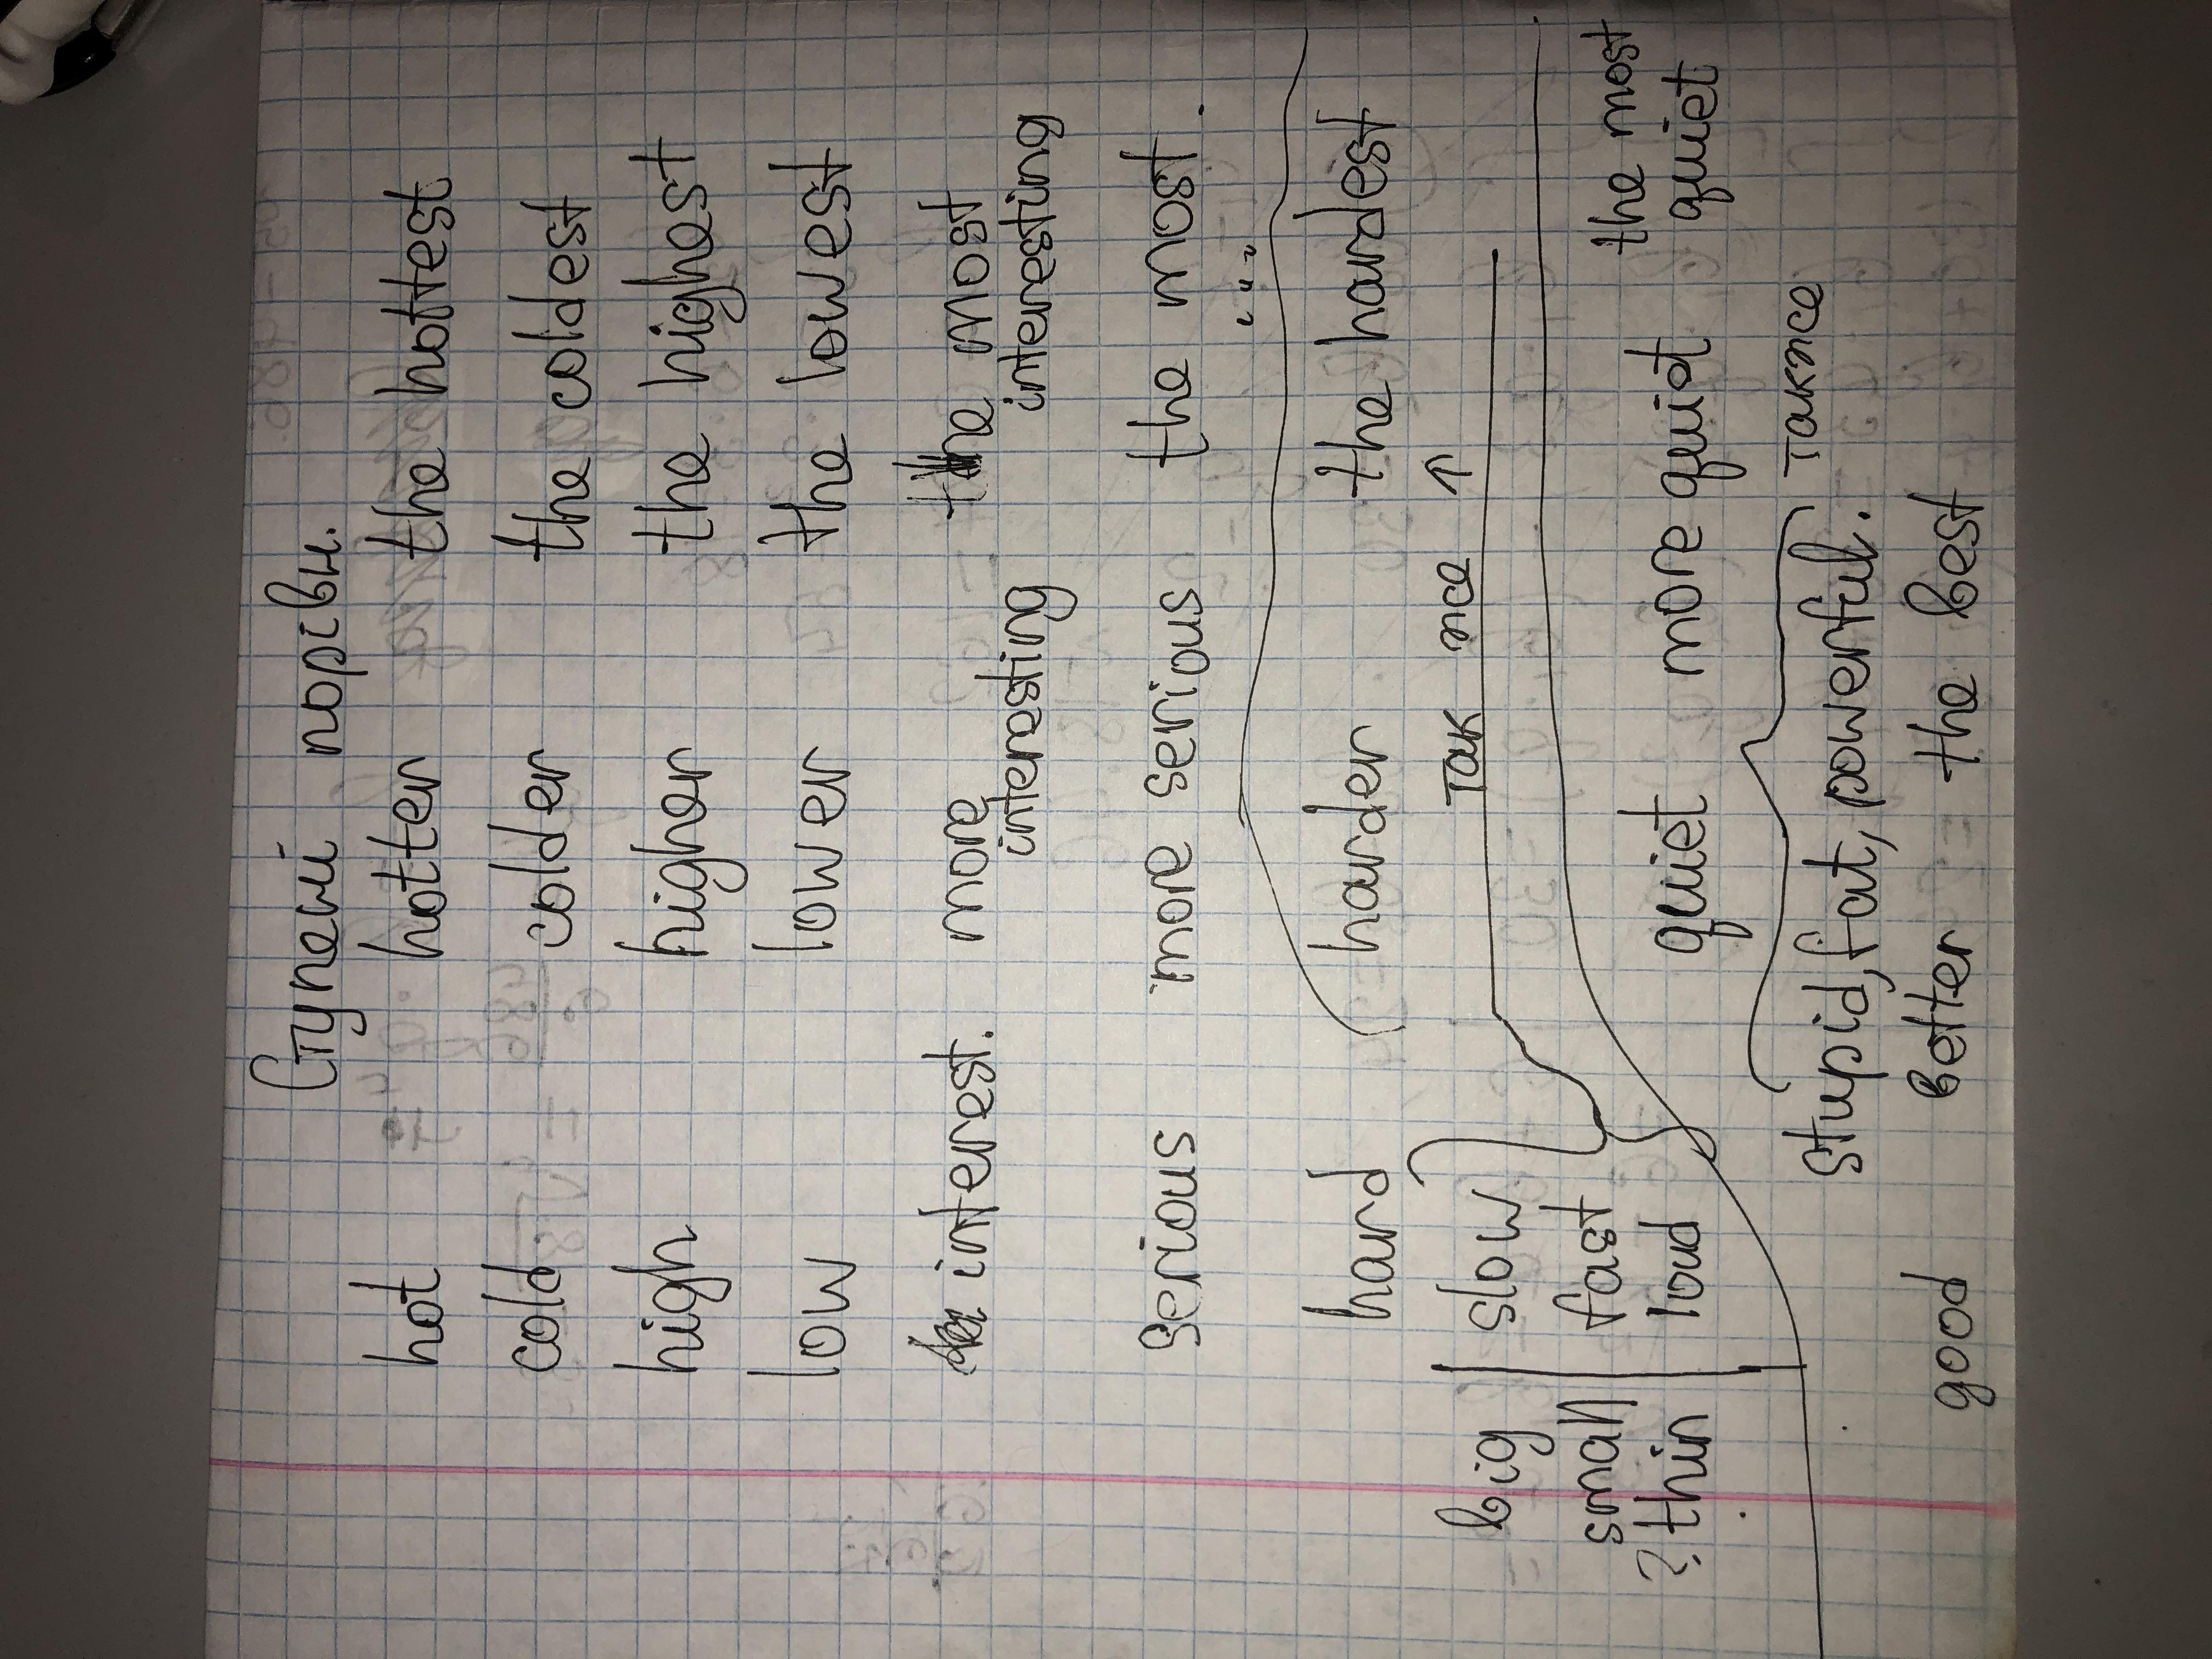 Ступені порівн.
hot hotter the hottest
cold colder the coldest
high higher the highest
low lower the lowest
interest. more interesting the most interesting
serious more serious the most.
" " "
hard harder the hardest
big slow так же ↑
small fast
? thin loud
quiet more quiet the most quiet
stupid, fat, powerful. також
good better the best